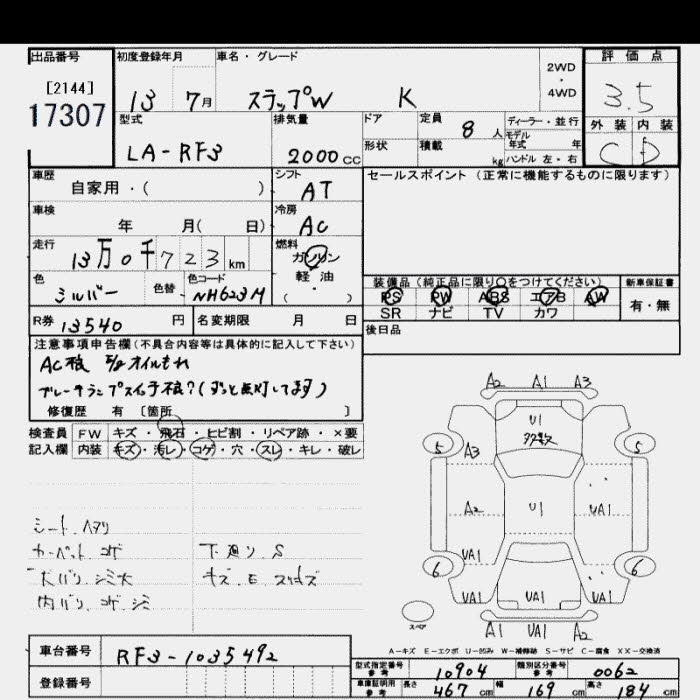 出品番号
[2144]
17307
初度登録年月
13 7月
車名・グレード
ステップW K
2WD
・
4WD
評価点
3.5
外装 内装
C D
型式
LA-RF3
排気量
2000 cc
ドア
定員 8 人
ディーラー・並行
モデル年式 年
形状
積載 kg
ハンドル 左・右
車歴
自家用・( )
シフト
AT
セールスポイント (正常に機能するものに限ります)
車検
年 月( 日)
冷房
AC
走行
13万0千723km
燃料
ガソリン
軽油
・
( )
色
シルバー
色替
色コード
NH623M
装備品 (純正品に限り○をつけてください)
PS PW ABS エアB AW
SR ナビ TV カワ
新車保証書
有・無
R券 13540 円
名変期限 月 日
後日品
注意事項申告欄 (不具合内容等は具体的に記入して下さい)
AC不良 オイルもれ
ブレーキランプスイッチ不良?(ずっと点灯してます)
修復歴 有 〔箇所 〕
検査員
記入欄
FW キズ・飛石・ヒビ割・リペア跡・×要
内装 キズ・汚レ・コゲ・穴・スレ・キレ・破レ
シート、ヘタリ
カーペット、コゲ 下廻り S
天バリ、シミ大 キズ、E、スリキズ
内バリ、コゲ、シミ
A2 A1 A3
U1
多数
5 A3 5
A2 U1 UA1
UA1 UA1
6 6
UA1 UA1 UA1
スペア
A1 UA1 A2
A-キズ E-エクボ U-凹み W-補修跡 S-サビ C-腐食 XX-交換済
車台番号
RF3-1035492
登録番号
型式指定番号
参考
10904
類別区分番号
参考
0062
車庫証明用
参考
長さ 467 cm 幅 169 cm 高さ 184 cm